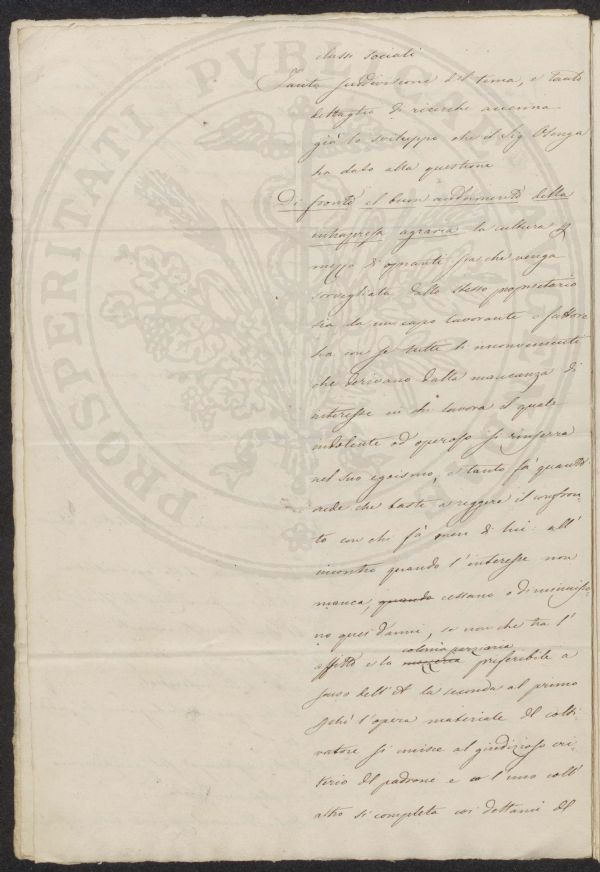 classi sociali
Tanta suddivisione del tema, e tanto
dettaglio di ricerche accenna
già lo sviluppo che il Sig. Osenga
ha dato alla questione
Di fronte al buon andamento della
intrapresa agraria la cultura p
mezzo di opranti, sia che venga
sorvegliata dallo stesso proprietario
sia da un capo lavorante o fattore
ha con se tutti li inconvenienti
che derivano dalla mancanza di
interesse in chi lavora il quale
indolente od operoso si rinserra
nel suo egoismo, e tanto fà quanto
vede che basti a reggere il confron-
to con chi fà meno di lui: all'
incontro quando l'interesse non
manca, quando cessano o diminuisco-
no quei danni, se non che tra l'
colonia parziaria
affitto e la mezzeria preferibile a
senso dell'A la seconda al primo
pchè l'opera materiale del colti-
vatore si unisce al giudizioso cri-
terio del padrone e l'uno coll'
altro si completa coi dettami del
PROSPERITATI PVBLICAE